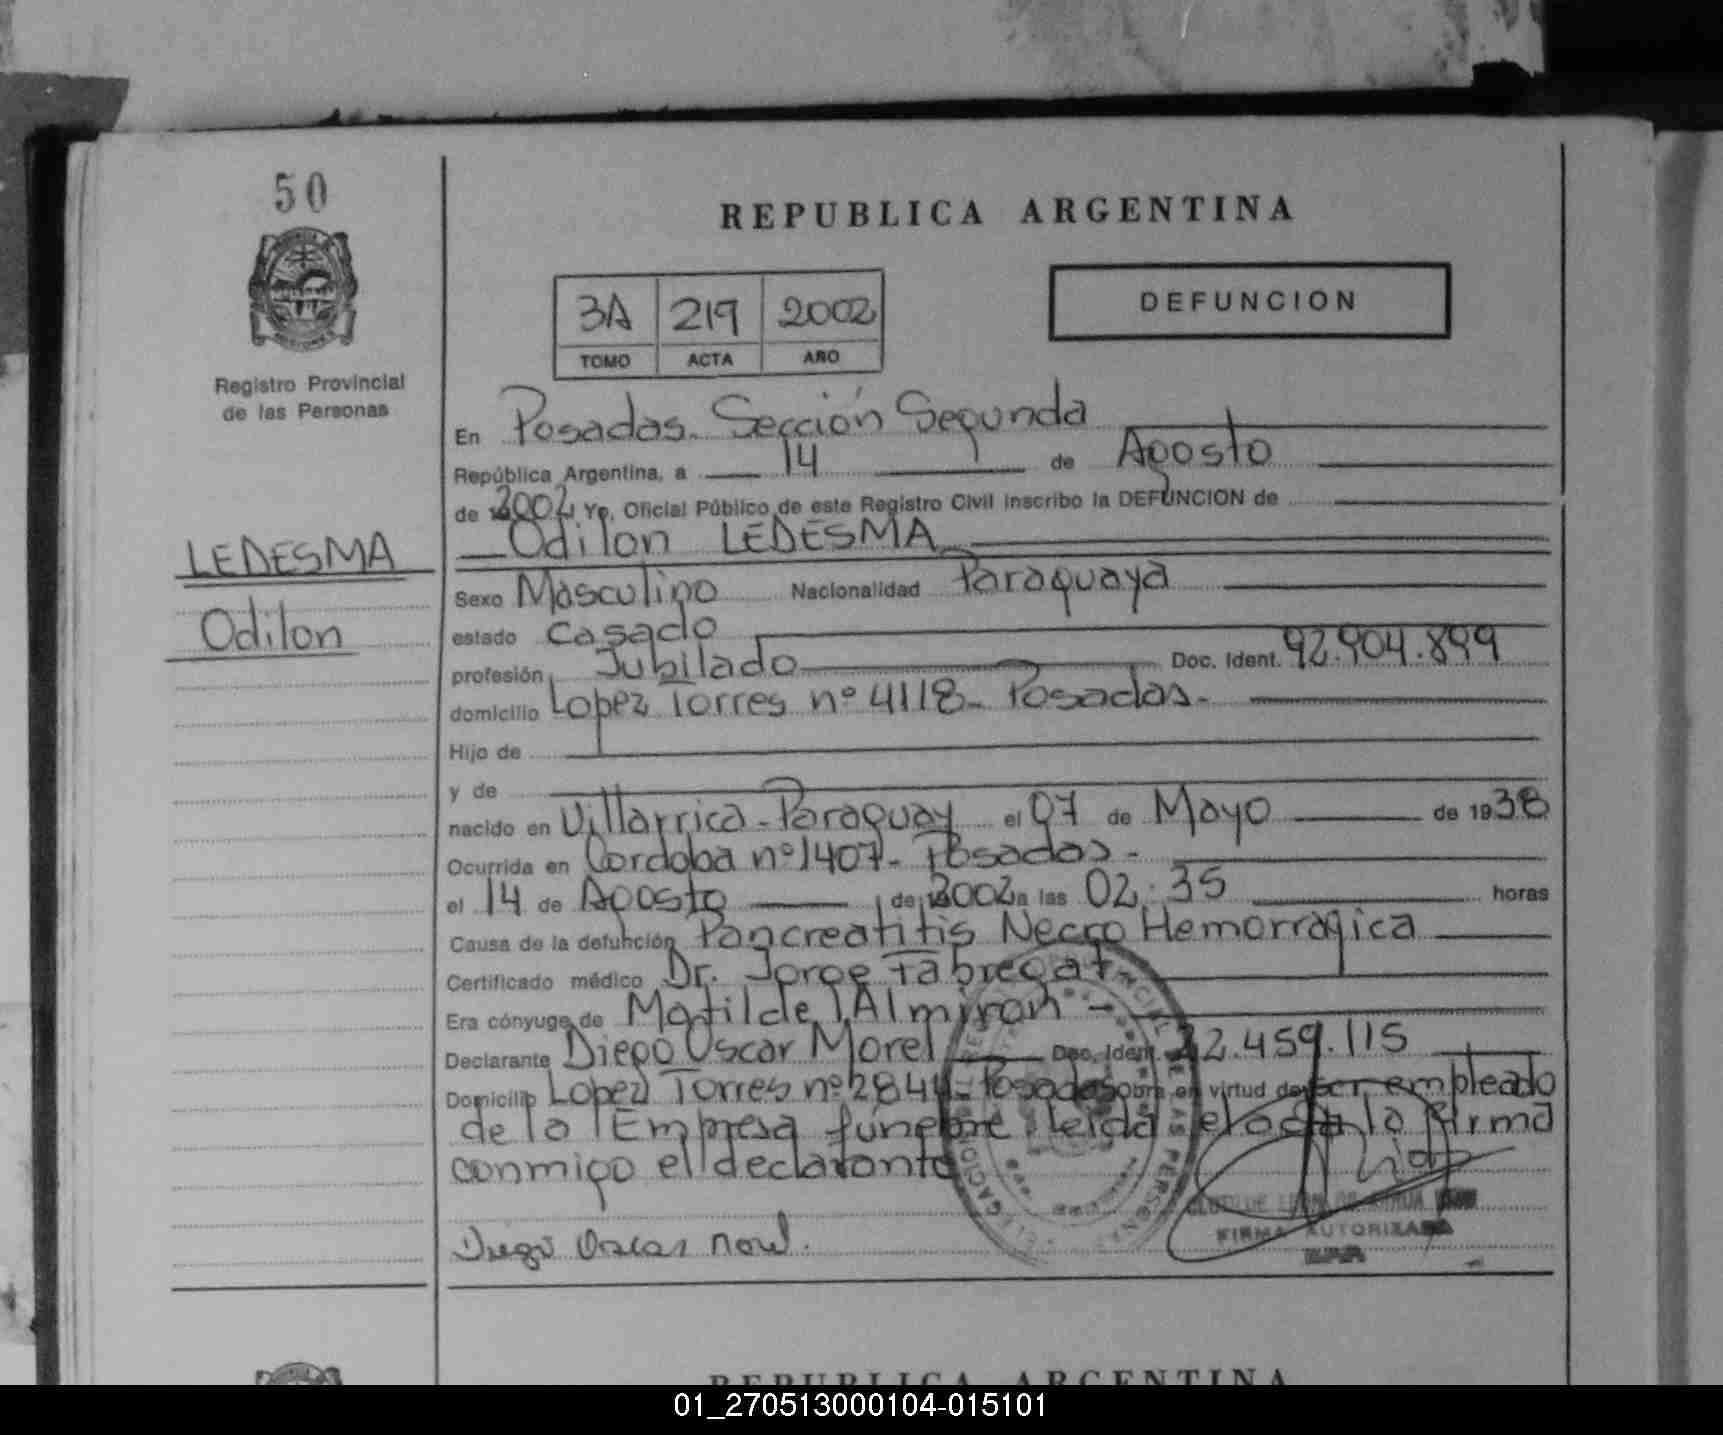 50
REPUBLICA ARGENTINA
3A 219 2002
TOMO ACTA AÑO
DEFUNCION
Registro Provincial
de las Personas
En Posadas. Sección Segunda
República Argentina, a 14 de Agosto
de 2002 Yo, Oficial Público de este Registro Civil inscribo la DEFUNCION de
LEDESMA
Odilon LEDESMA
Odilon
Sexo Masculino Nacionalidad Paraguaya
estado Casado
profesión Jubilado Doc. Ident. 92.904.899
domicilio Lopez Torres nº 4118 - Posadas.-
Hijo de
y de
nacido en Villarrica - Paraguay el 07 de Mayo de 1938
Ocurrida en Cordoba nº 1407 - Posadas -
el 14 de Agosto de 2002 a las 02:35 horas
Causa de la defunción Pancreatitis Necro Hemorragica
Certificado médico Dr. Jorge Fabregat
Era cónyuge de Matilde Almiron -
Declarante Diego Oscar Morel Doc. Ident. 22.459.115
Domicilio Lopez Torres nº 2844 - Posadas obra en virtud de ser empleado
de la Empresa fúnebre leida el acta la firma
conmigo el declarante
Diego Oscar Morel.
FIRMA AUTORIZADA
REPUBLICA ARGENTINA
01_270513000104-015101